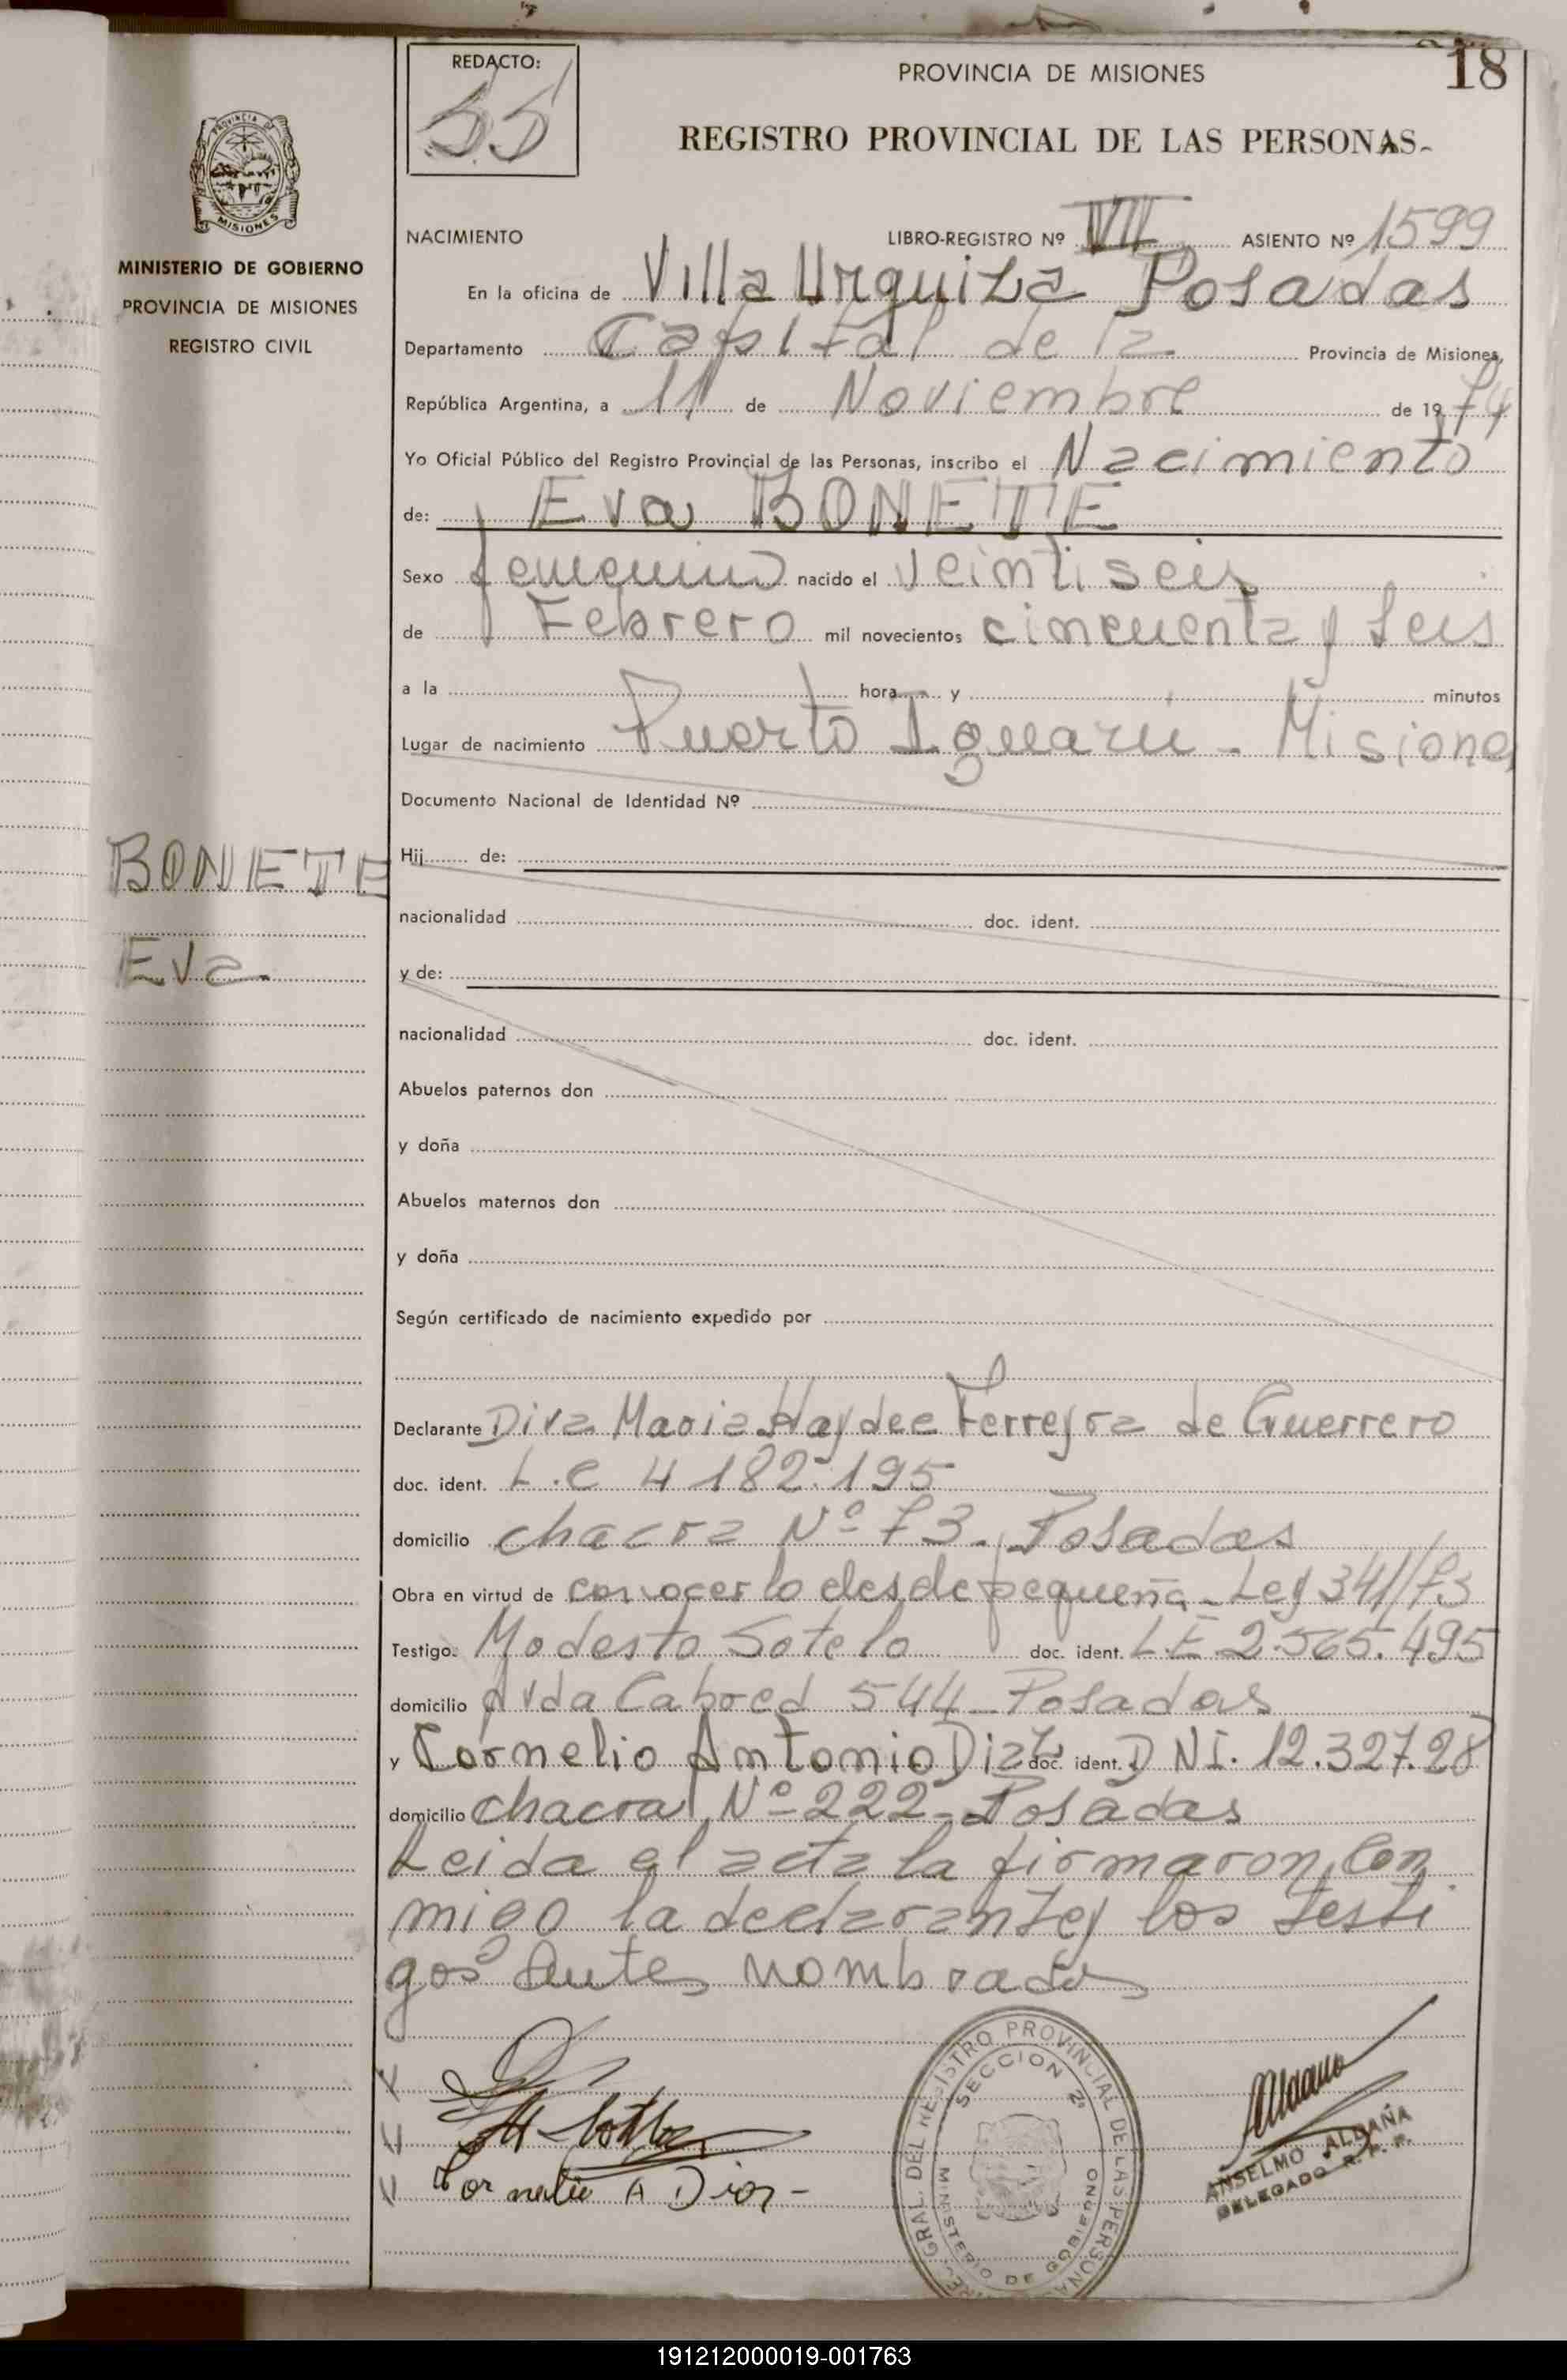 REDACTO:
55
PROVINCIA DE MISIONES
18
REGISTRO PROVINCIAL DE LAS PERSONAS
PROVINCIA DE
MISIONES
MINISTERIO DE GOBIERNO
PROVINCIA DE MISIONES
REGISTRO CIVIL
BONETE
Eva
NACIMIENTO LIBRO-REGISTRO Nº VII ASIENTO Nº 1599
En la oficina de Villa Urquiza Posadas
Departamento Capital de la Provincia de Misiones,
República Argentina, a 11 de Noviembre de 1974
Yo Oficial Público del Registro Provincial de las Personas, inscribo el Nacimiento
de: Eva BONETE
Sexo femenino nacido el veintiseis
de Febrero mil novecientos cincuenta y seis
a la hora y minutos
Lugar de nacimiento Puerto Iguazu - Misiones
Documento Nacional de Identidad Nº
Hij de:
nacionalidad doc. ident.
y de:
nacionalidad doc. ident.
Abuelos paternos don
y doña
Abuelos maternos don
y doña
Según certificado de nacimiento expedido por
Declarante Diva Maria Haydee Ferreyra de Guerrero
doc. ident. L.C 4 182.195
domicilio chacra Nº 73. Posadas
Obra en virtud de conocerlo desde pequeña - Ley 341/73
Testigo: Modesto Sotelo doc. ident. L.E 2.565.495
domicilio Avda Cabred 544 - Posadas
y Cornelio Antonio Diaz doc. ident. DNI. 12.327.28
domicilio chacra Nº 222 - Posadas
Leida el acta la firmaron con
migo la declarante y los testi
gos antes nombrados
Cornelio A Diaz -
GRAL. DEL REGISTRO PROVINCIAL DE LAS PERSONAS
SECCION 2ª
MINISTERIO DE GOBIERNO
ANSELMO ALDAÑA
DELEGADO R. P. P.
191212000019-001763